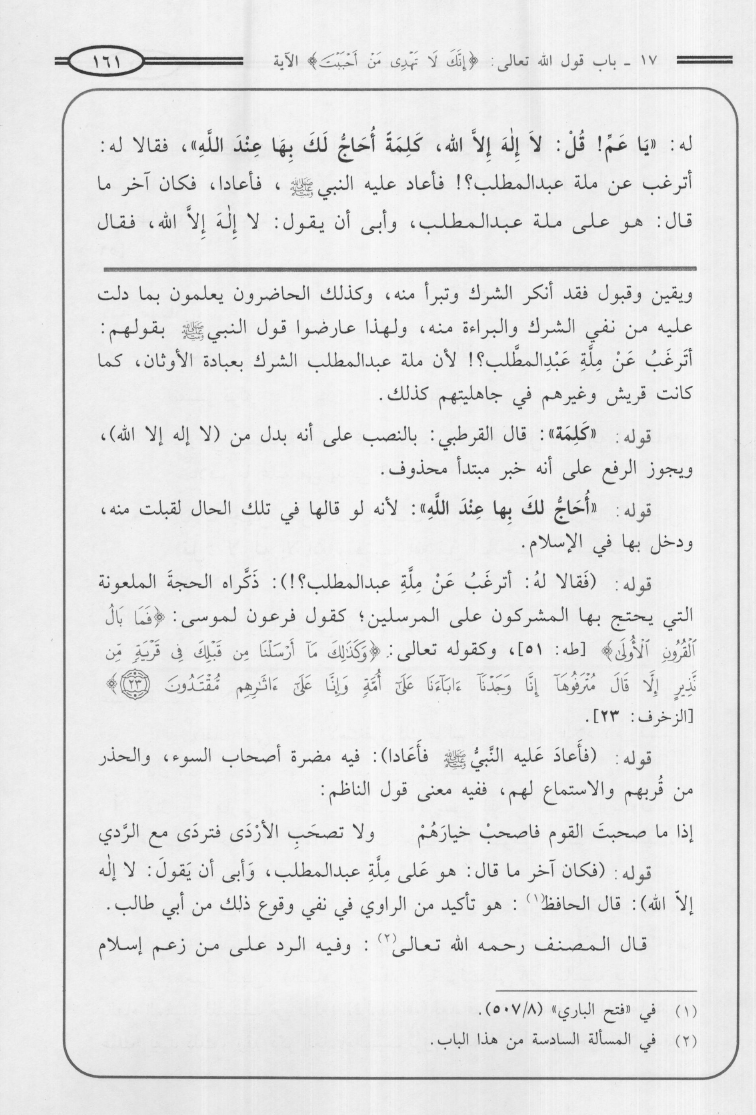 ١٧ ـ باب قول الله تعالى: ﴿إِنَّكَ لَا تَهْدِى مَنْ أَحْبَبْتَ﴾ الآية
١٦١
له: «يَا عَمِّ! قُلْ: لاَ إِلٰهَ إِلاَّ الله، كَلِمَةً أُحَاجُّ لَكَ بِهَا عِنْدَ اللَّهِ»، فقالا له:
أترغب عن ملة عبدالمطلب؟! فأعاد عليه النبي ﷺ ، فأعادا، فكان آخر ما
قال: هو على ملة عبدالمطلب، وأبى أن يقول: لا إِلٰهَ إِلاَّ الله، فقال
ويقين وقبول فقد أنكر الشرك وتبرأ منه، وكذلك الحاضرون يعلمون بما دلت
عليه من نفي الشرك والبراءة منه، ولهذا عارضوا قول النبي ﷺ بقولهم:
أتَرغَبُ عَنْ مِلَّةِ عَبْدِالمطَّلب؟! لأن ملة عبدالمطلب الشرك بعبادة الأوثان، كما
كانت قريش وغيرهم في جاهليتهم كذلك.
قوله: «كَلِمَة»: قال القرطبي: بالنصب على أنه بدل من (لا إله إلا الله)،
ويجوز الرفع على أنه خبر مبتدأ محذوف.
قوله: «أُحَاجُّ لكَ بِها عِنْدَ اللَّهِ»: لأنه لو قالها في تلك الحال لقبلت منه،
ودخل بها في الإسلام.
قوله: (فَقالا لهُ: أترغَبُ عَنْ مِلَّةِ عبدالمطلب؟!): ذَكَّراه الحجةَ الملعونة
التي يحتج بها المشركون على المرسلين؛ كقول فرعون لموسى: ﴿فَمَا بَالُ
ٱلْقُرُونِ ٱلْأُولَىٰ﴾ [طه: ٥١]، وكقوله تعالى: ﴿وَكَذَٰلِكَ مَآ أَرْسَلْنَا مِن قَبْلِكَ فِى قَرْيَةٍ مِّن
نَّذِيرٍ إِلَّا قَالَ مُتْرَفُوهَآ إِنَّا وَجَدْنَآ ءَابَآءَنَا عَلَىٰٓ أُمَّةٍ وَإِنَّا عَلَىٰٓ ءَاثَٰرِهِم مُّقْتَدُونَ ٢٣﴾
[الزخرف: ٢٣].
قوله: (فأَعادَ عَليه النَّبيُّ ﷺ فأَعَادا): فيه مضرة أصحاب السوء، والحذر
من قُربهم والاستماع لهم، ففيه معنى قول الناظم:
إذا ما صحبتَ القوم فاصحبْ خيارَهُمْ ولا تصحَبِ الأرْدَى فتردَى مع الرَّدي
قوله: (فكان آخر ما قال: هو عَلى مِلَّةِ عبدالمطلب، وَأبى أن يَقولَ: لا إلٰه
إلاّ الله): قال الحافظ(١) : هو تأكيد من الراوي في نفي وقوع ذلك من أبي طالب.
قال المصنف رحمه الله تعالى(٢) : وفيه الرد على من زعم إسلام
(١) في «فتح الباري» (٥٠٧/٨).
(٢) في المسألة السادسة من هذا الباب.